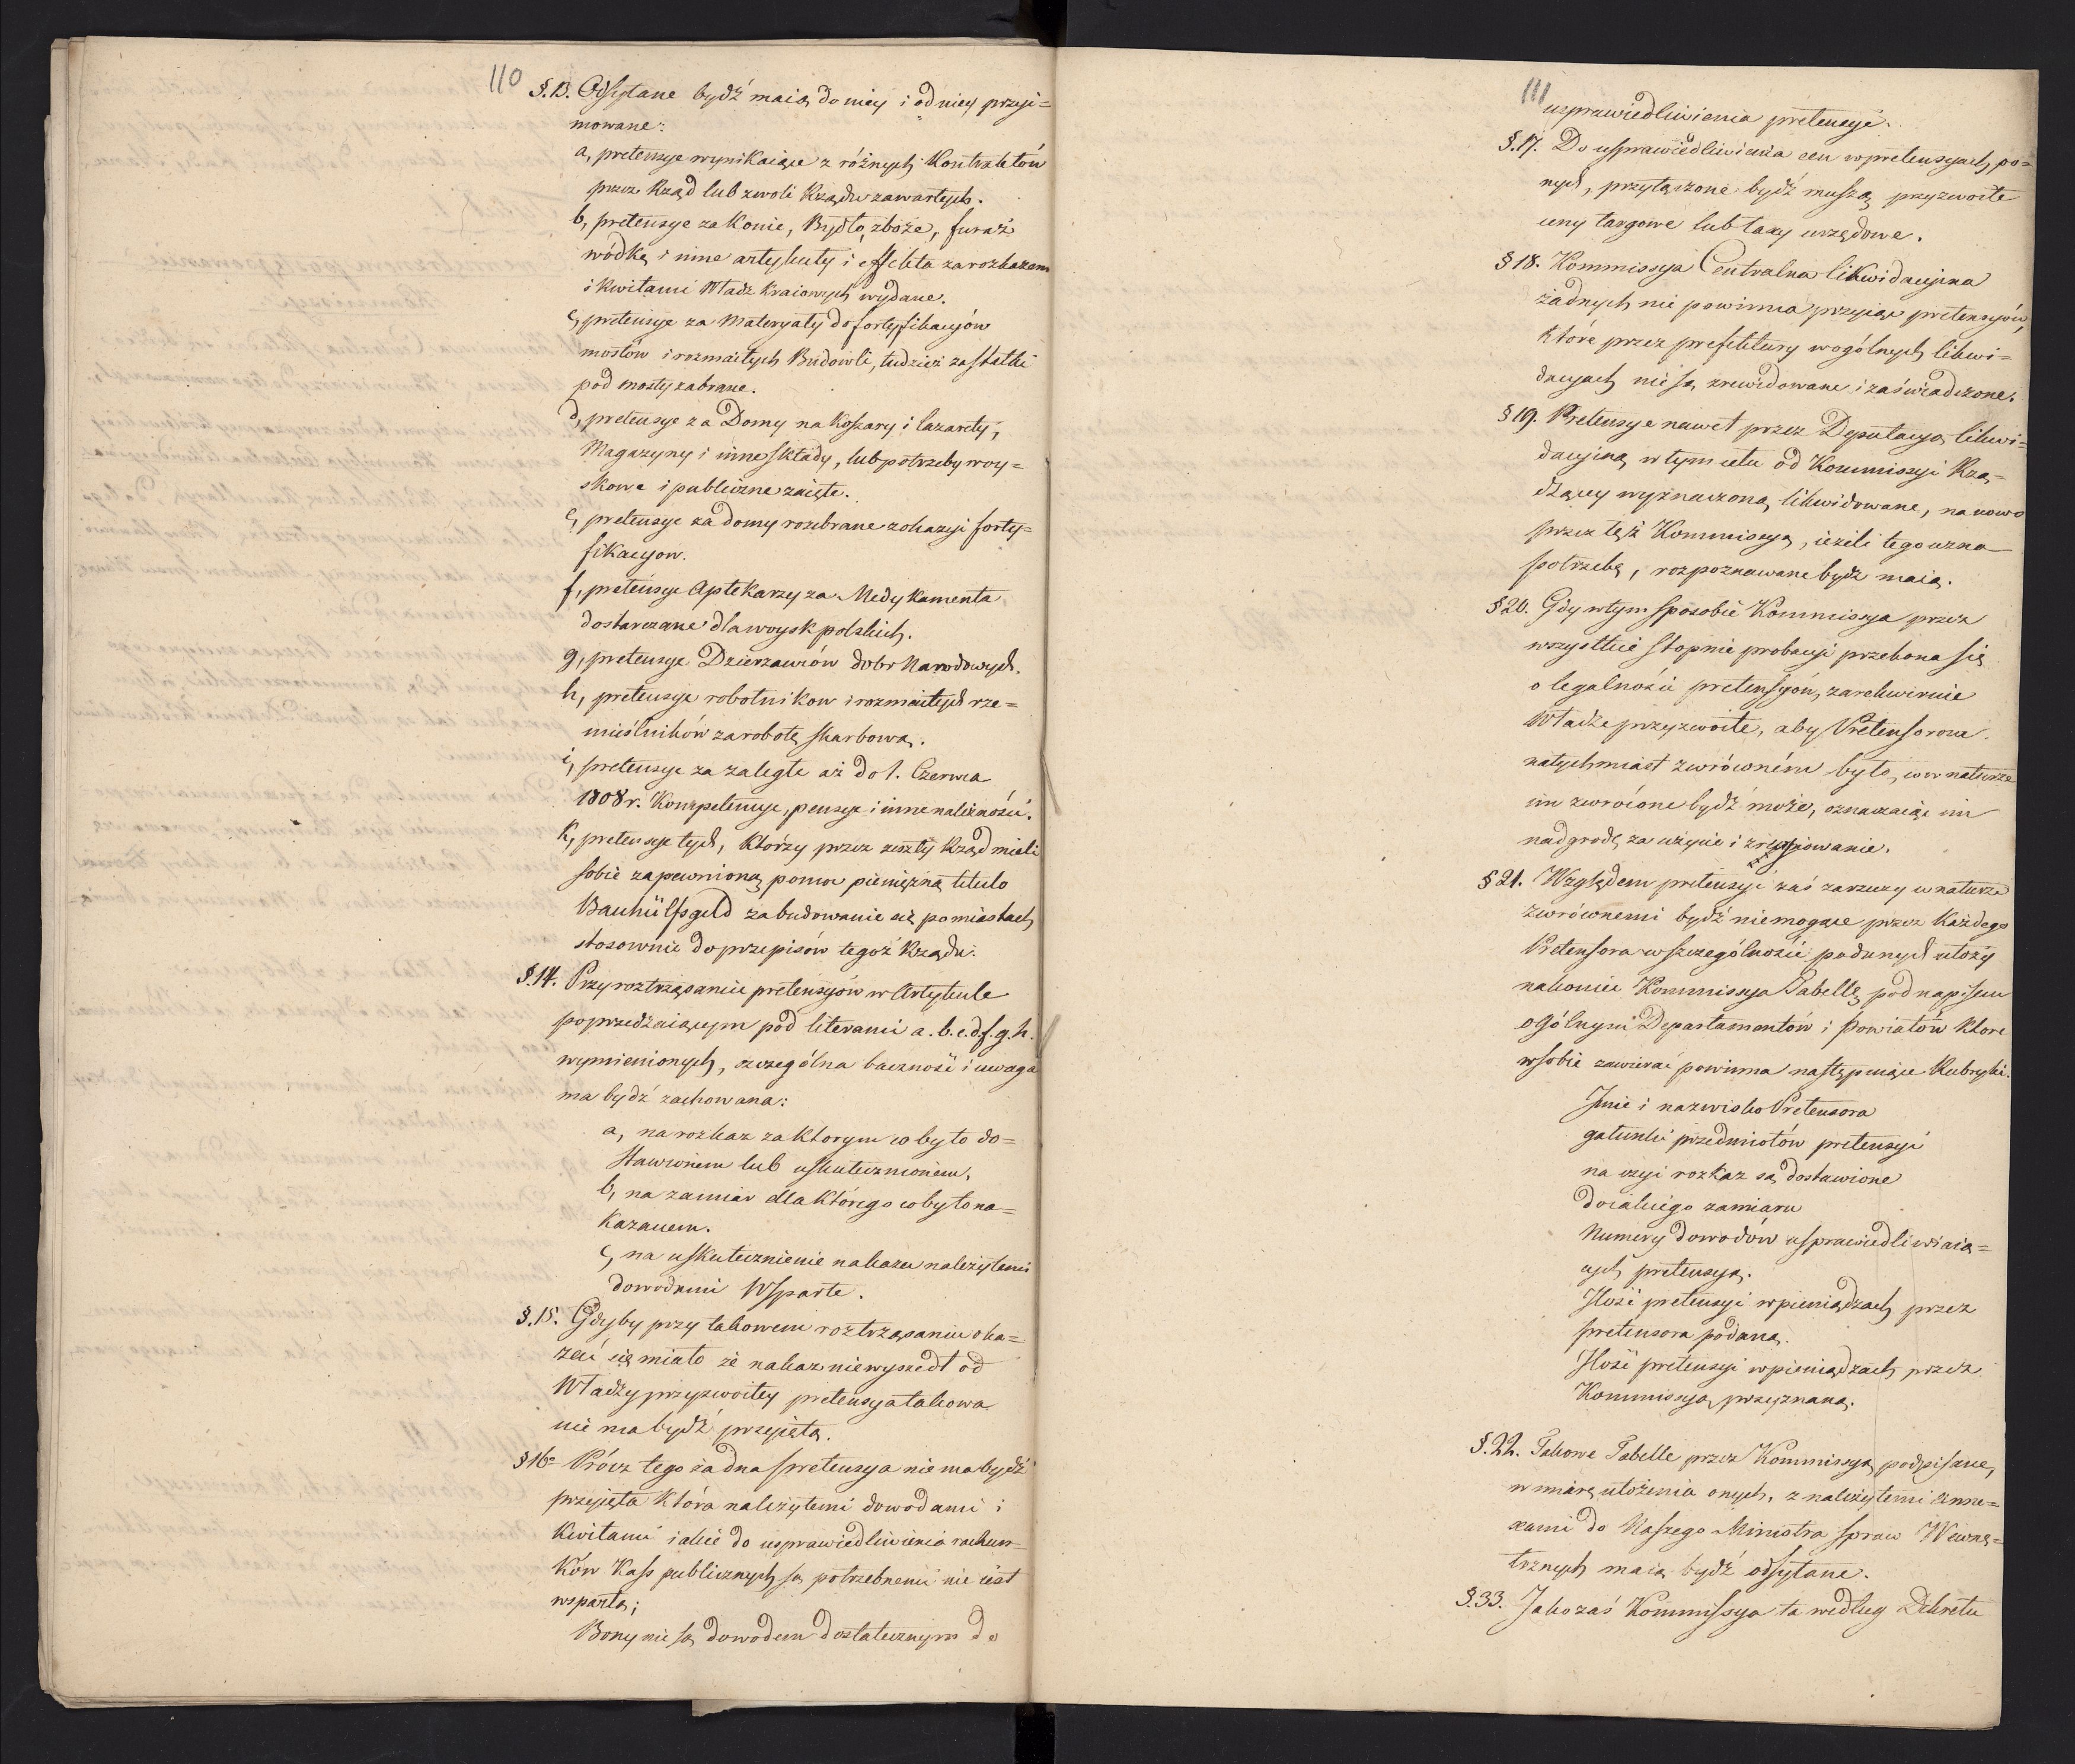 110
§.13. Odsyłane bydź maią do niey i od niey przyi=
mowane:
a, pretensye wynikaiące z różnych Kontraktów
przez Rząd lub z woli Rządu zawartych.
b, pretensye za Konie, Bydło, zboże, furaż
wódkę i inne artykuły i effekta za rozkazem
i kwitami Władz Kraiowych wydane.
c, pretensye za Materyały do fortyfikacyów
mostów i rozmaitych Budowli, tudzież za statki
pod mosty zabrane.
d, pretensye za Domy na Koszary i lazarety,
Magazyny i inne składy, lub potrzeby woy=
skowe i publiczne zaięte.
e, pretensye za domy rozebrane z okazyi forty=
fikacyow.
f, pretensye Aptekarzy za Medykamenta
dostarczane dla woysk polskich.
g, pretensye Dzierzawców dobr Narodowych.
h, pretensye robotnikow i rozmaitych rze=
mieślników za robotę skarbową.
i, pretensye za zaległe aż do 1. Czerwca
1808 r. Kompetencye, pensye i inne należności.
k, pretensye tych, którzy przez zeszły Rząd mieli
sobie zapewnioną pomoc pieniężną titulo
Bauhülfsgeld za budowanie się po miastach
stosownie do przepisów tegoż Rządu.
§.14. Przy roztrząsaniu pretensyów w Artykule
poprzedzaiącym pod literami a. b. c. d. f. g. h.
wymienionych, szczególna baczność i uwaga
ma bydź zachowana:
a, na rozkaz za ktorym co było do=
stawionem lub uskutecznionem,
b, na zamiar dla którego co było na=
kazanem.
c, na uskutecznienie nakazu należytemi
dowodami wsparte.
§.15. Gdyby przy takowem roztrząsaniu oka=
zać się miało że nakaz nie wyszedł od
Władzy przyzwoitey pretensya takowa
nie ma bydź przyięta.
§16. Prócz tego żadna pretensya nie ma bydź
przyięta która należytemi dowodami i
Kwitami iakie do usprawiedliwienia rachun=
ków Kass publicznych są potrzebnemi nie iest
wsparta;
Bony nie są dowodem dostatecznym do
111
usprawiedliwienia pretensyi.
§.17. Do usprawiedliwienia cen w pretensyach po=
nych, przyłączone bydź muszą przyzwoite
ceny targowe lub taxy urzędowe.
§18. Kommissya Centralna likwidacyina
żadnych nie powinna przyiąć pretensyów,
które przez prefektury w ogólnych likwi=
dacyach nie są zrewidowane i zaświadczone.
§19. Pretensye nawet przez Deputacyą likwi=
dacyiną w tym celu od Kommissyi Rzą=
dzącey wyznaczoną likwidowane, na nowo
przez tęż Kommissyą, ieżeli tego uzna
potrzebę, rozpoznawane bydz maią.
§20. Gdy w tym sposobie Kommissya przez
wszystkie stopnie probacyi przekona się
o legalności pretensyów, zarekwiruie
Władze przyzwoite, aby Pretensorom
natychmiast zwróconém było, co w naturze
im zwrócone bydź może, oznaczaiąc im
nadgrodę za użycie i zruynowanie.
§21. Względem pretensyi zaś za rzeczy w naturze
zwróconemi bydź niemogące przez Każdego
Pretensora w szczególności podanych ułoży
nakoniec Kommissya Tabellę pod napisem
ogólnym Departamentów i Powiatów ktore
w sobie zawierać powinna następuiące Rubryki.
Jmie i nazwisko Pretensora
gatunki przedmiotów pretensyi
na czyi rozkaz są dostawione
do iakiego zamiaru
Numery dowodów usprawiedliwiaią=
cych pretensyą.
Jlość pretensyi w pieniądzach przez
pretensora podana.
Jlość pretensyi w pieniądzach przez
Kommissyą przyznana.
§.22. Takowe Tabelle przez Kommissyą podpisane,
w miarę ułożenia onych, z należytemi Anne=
xami do Naszego Ministra spraw Wewnę=
trznych maią bydź odsyłane.
§.33. Jako zaś Kommissya ta według Dekretu